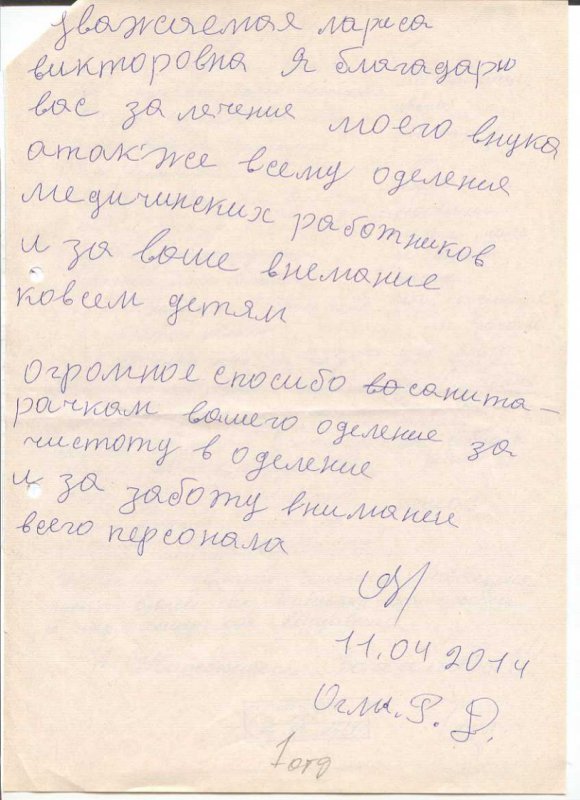 уважаемая лариса
викторовна я благадарю
вас за лечение моего внука
атак'же всему оделения
медичинских работников
и за ваше внемание
ковсем детям
огромное спосибо санита-
рачкам вашего оделение за
чистоту в оделение
и за заботу внимание
всего персонала
11.04 2014
Р. Д.
1 отд